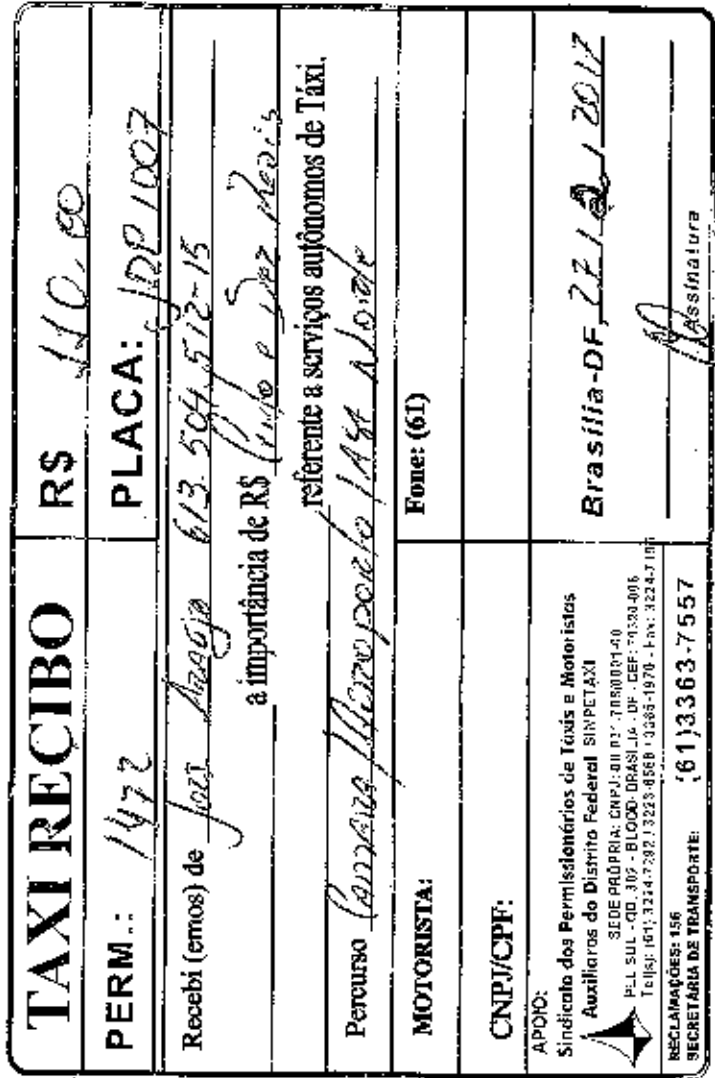 TAXI RECIBO R$ 110,00
PERM.: 1472 PLACA: JDP 1007
Recebi (emos) de José Araújo 613.504.512-15
a importância de R$ Cento e Dez Reais
referente a serviços autônomos de Táxi.
Percurso Camara / Aeroporto / Asa Norte
MOTORISTA: Fone: (61)
CNPJ/CPF:
APOIO:
Sindicato dos Permissionários de Táxis e Motoristas
Auxiliares do Distrito Federal SINPETAXI
SEDE PRÓPRIA: CNPJ:
BRASÍLIA - DF - CEP:
RECLAMAÇÕES: 156
SECRETÁRIA DE TRANSPORTE: (61)3363-7557
Brasília-DF, 27 / 2 / 2017
Assinatura